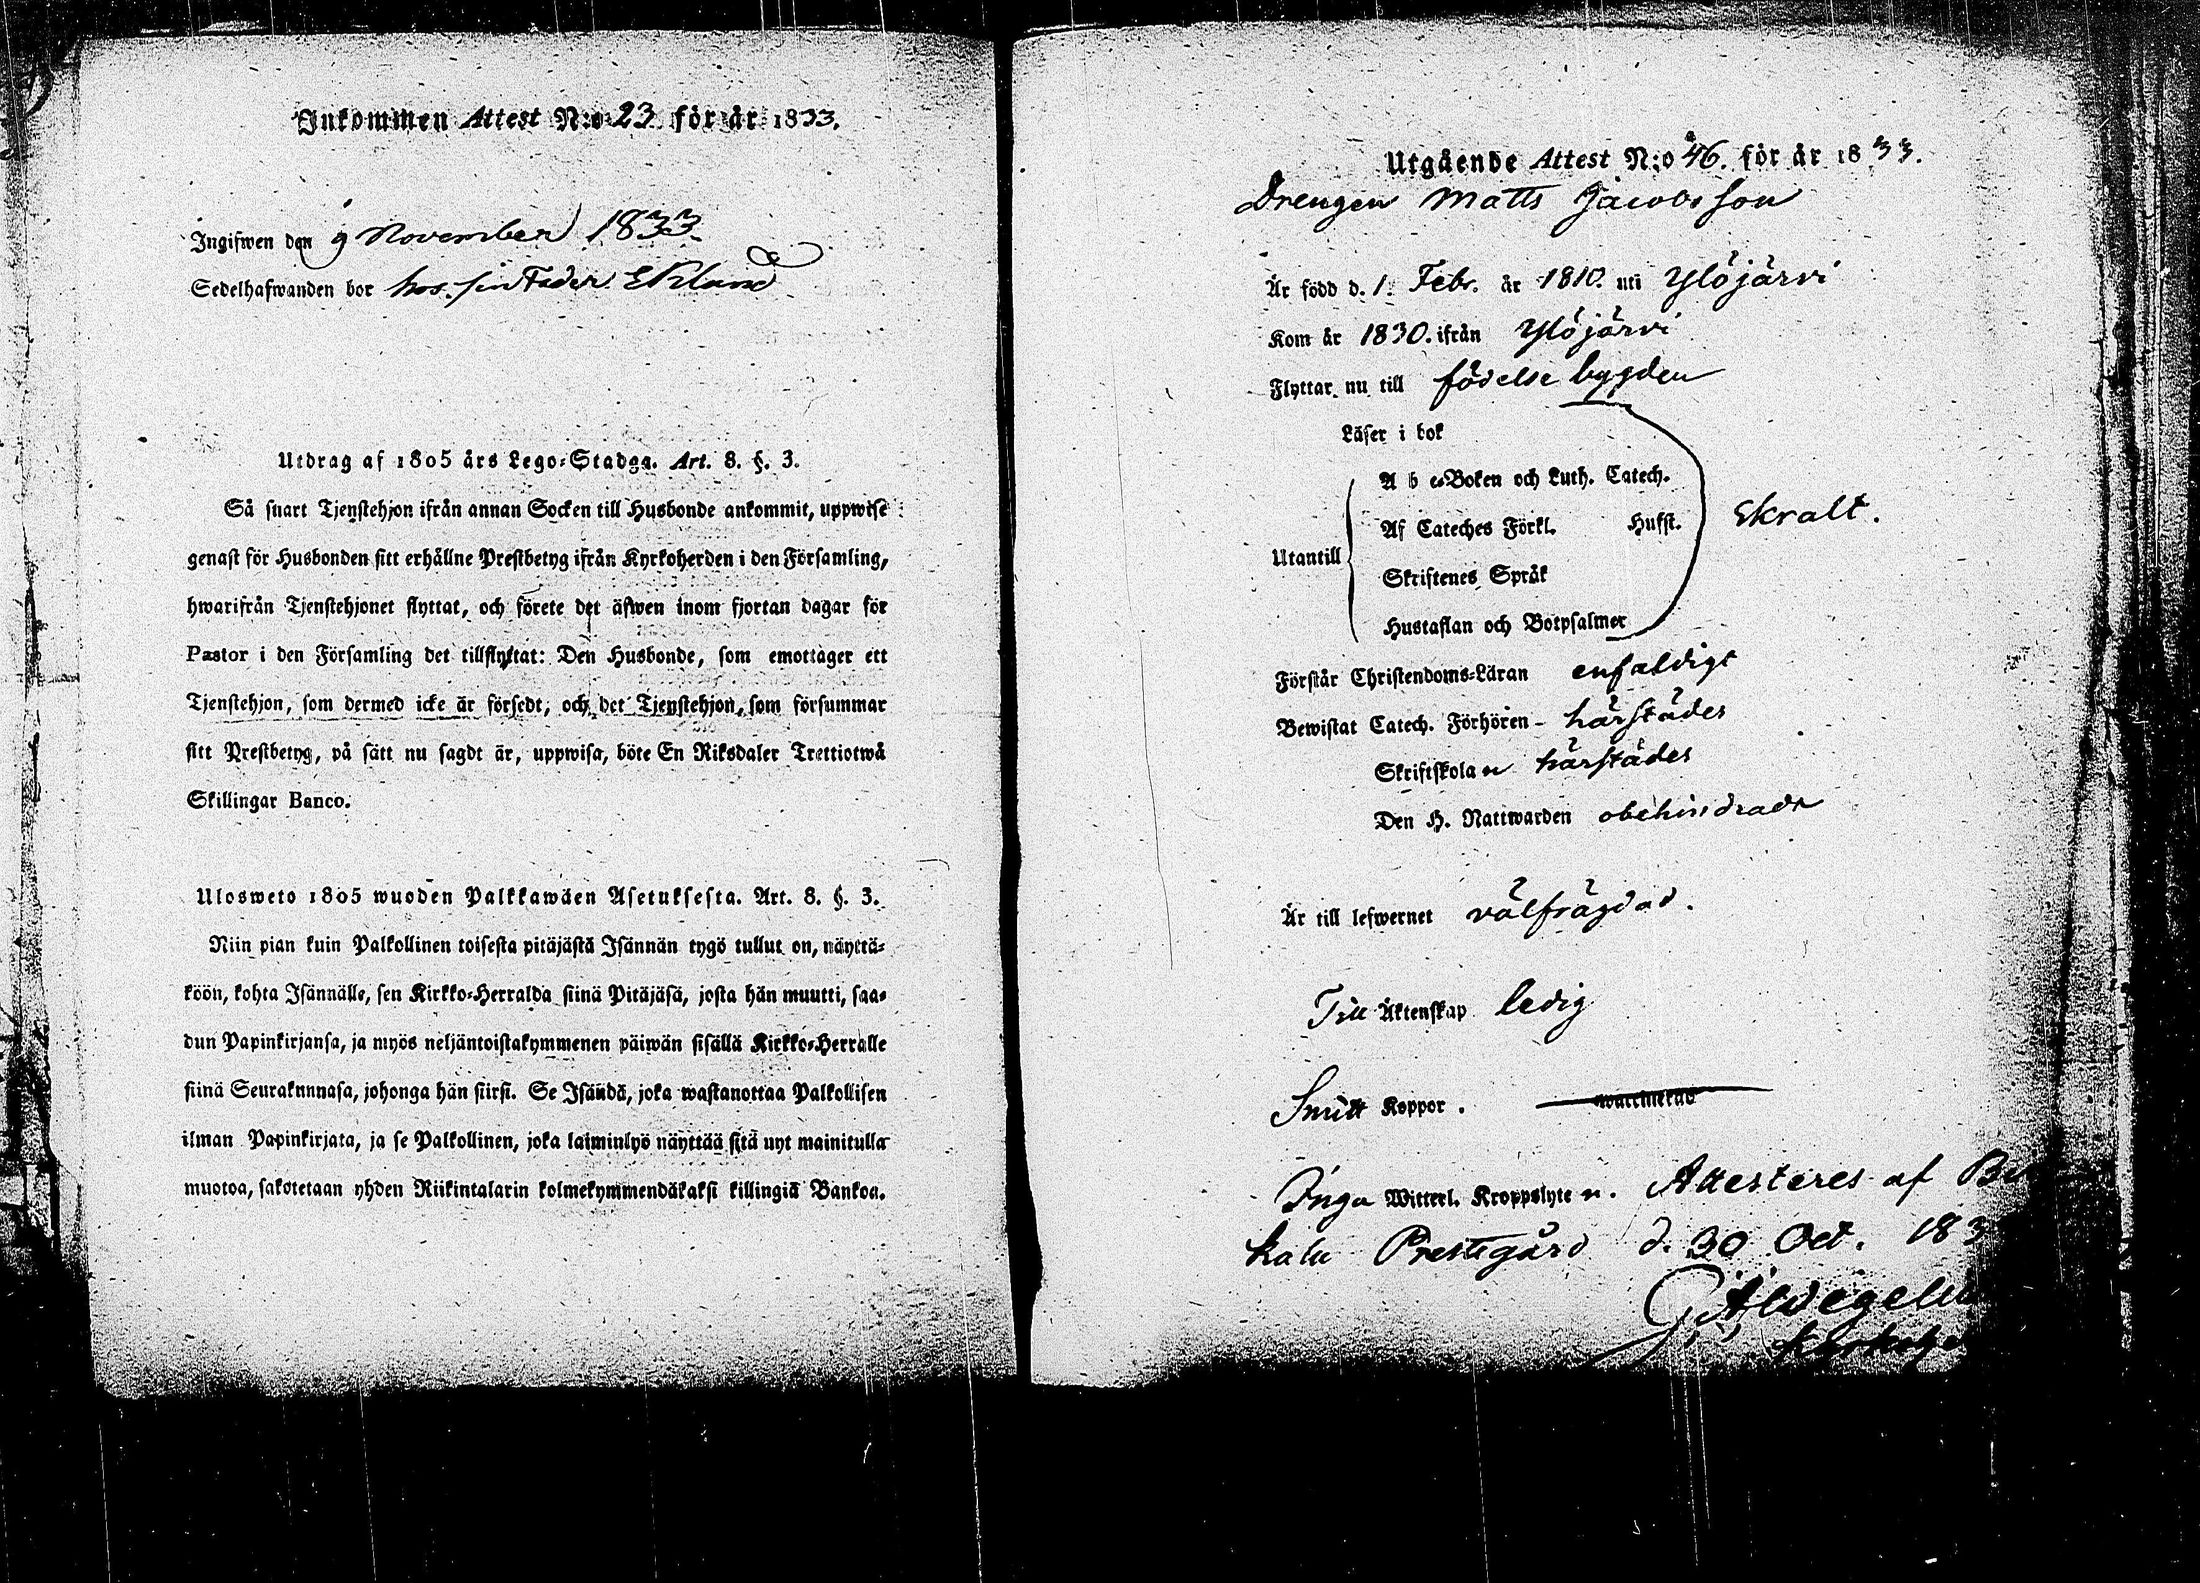 Inkommen Attest N:o 23. för år 1833.
Ingifwen den 9 November 1833.
Sedelhafwanden bor hos sin Fader Eklund
Utdrag af 1805 års Lego-Stadga. Art. 8. §. 3.
Så snart Tjenstehjon ifrån annan Socken till Husbonde ankommit, uppwise
genast för Husbonden sitt erhållne Prestbetyg ifrån Kyrkoherden i den Församling,
hwarifrån Tjenstehjonet flyttat, och förete det äfwen inom fjortan dagar för
Pastor i den Församling det tillflyttat: Den Husbonde, som emottager ett
Tjenstehjon, som dermed icke är försedt, och det Tjenstehjon, som försummar
sitt Prestbetyg, på sätt nu sagdt är, uppwisa, böte En Riksdaler Trettiotwå
Skillingar Banco.
Ulosweto 1805 wuoden Palkkawäen Asetuksesta. Art. 8. §. 3.
Niin pian kuin Palkollinen toisesta pitäjästä Isännän tygö tullut on, näyttä-
köön, kohta Isännälle, sen Kirkko-Herralda siinä Pitäjäsä, josta hän muutti, saa-
dun Papinkirjansa, ja myös neljäntoistakymmenen päiwän sisällä Kirkko-Herralle
siinä Seurakunnasa, johonga hän siirsi. Se Isändä, joka wastanottaa Palkollisen
ilman Papinkirjata, ja se Palkollinen, joka laiminlyö näyttää sitä nyt mainitulla
muotoa, sakotetaan yhden Riikintalarin kolmekymmendäkaksi killingiä Bankoa.
Utgående Attest N:o 46. för år 1833.
Drengen Matts Jacobsson
Är född d. 1. Febr. år 1810. uti Ylöjärvi
Kom år 1830. ifrån Ylöjärvi
Flyttar nu till födelse bygden
Läser i bok
A b c-Boken och Luth. Catech.
Af Cateches Förkl. Hufst. Skralt.
Utantill
Skriftenes Språk
Hustaflan och Botpsalmer
Förstår Christendoms-Läran enfaldigt
Bewistat Catech. Förhören härstädes
Skriftskolan härstädes
Den H. Nattwarden obehindradt
Är till lefwernet välfrägdad.
Till Äktenskap ledig
Smitt Koppor.
Inga Witterl. Kroppslyten. Attesteres af
kala Prestgård d. 30 Oct. 183